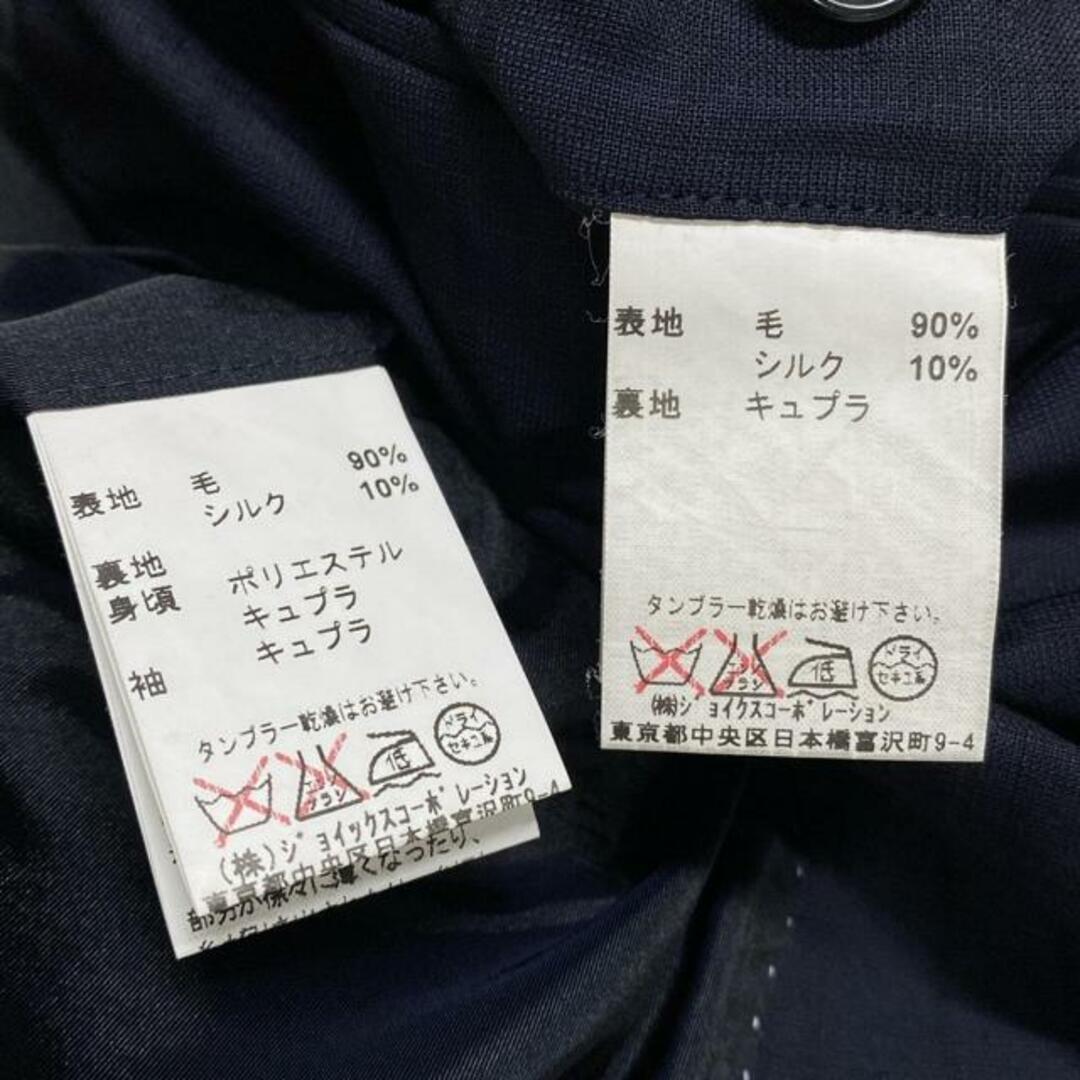 表地 毛 90%
シルク 10%
裏地
身頃 ポリエステル
キュプラ
袖 キュプラ
タンブラー乾燥はお避け下さい。
エンソ
ブラシ
低
ドライ
セキユ系
(株)ジョイックスコーポレーション
東京都中央区日本橋富沢町9-4
部分が徐々に薄くなったり、
表地 毛 90%
シルク 10%
裏地 キュプラ
タンブラー乾燥はお避け下さい。
エンソ
ブラシ
低
ドライ
セキユ系
(株)ジョイックスコーポレーション
東京都中央区日本橋富沢町9-4